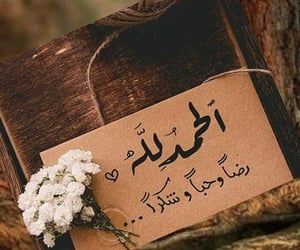 الحمدُ لِلَّه
رضاً وحباً و شكراً ...